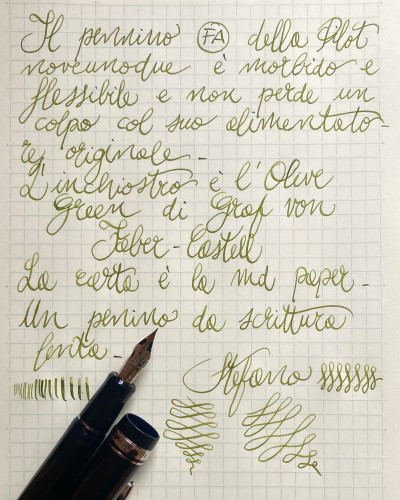 Il pennino FA della Pilot
noveunoque è morbido e
flessibile e non perde un
colpo col suo alimentato-
re originale.
L'inchiostro è l'Olive
Green di Graf von
Faber-Castell
La carta è la md paper.
Un penino da scrittura
lenta.
Stefano